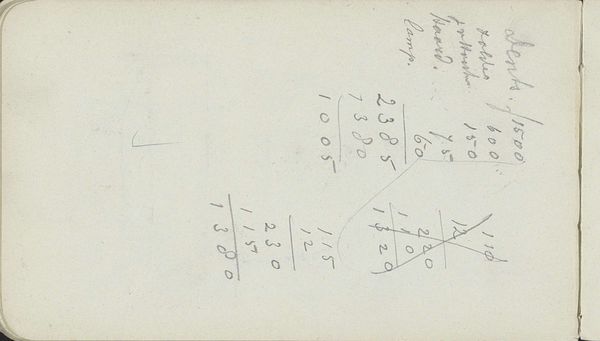 f 1500
600
150
haard. 75
lamp. 60
2385
1380
1005
110
12
220
110
1320
115
12
230
115
1380